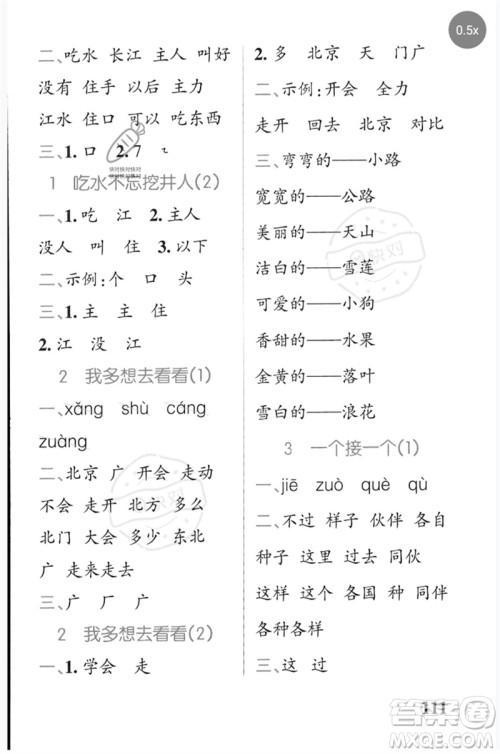 0.5x
二、吃水 长江 主人 叫好
没有 住手 以后 主力
江水 住口 可以 吃东西
三、1.口 2.7 ㄟ
快对快对快对
快对快对快对
1 吃水不忘挖井人(2)
一、1.吃 江 2.主人
没人 叫 住 3.以下
二、示例:个 口 头
三、1.主 主 住
2.江 没 江
2 我多想去看看(1)
一、xǎng shù cáng
zhuàng
二、北京 广 开会 走动
不会 走开 北方 多么
北门 大会 多少 东北
广 走来走去
三、广 厂 广
2 我多想去看看(2)
一、1.学会 走
2.多 北京 天 门广
二、示例:开会 全力
走开 回去 北京 对比
三、弯弯的——小路
宽宽的——公路
美丽的——天山
洁白的——雪莲
可爱的——小狗
香甜的——水果
金黄的——落叶
雪白的——浪花
快对
3 一个接一个(1)
一、jiē zuò què qù
二、不过 样子 伙伴 各自
种子 这里 过去 同伙
这样 这个 各国 种 同样
各种各样
三、这 过
111
答案圈
MXQE.COM